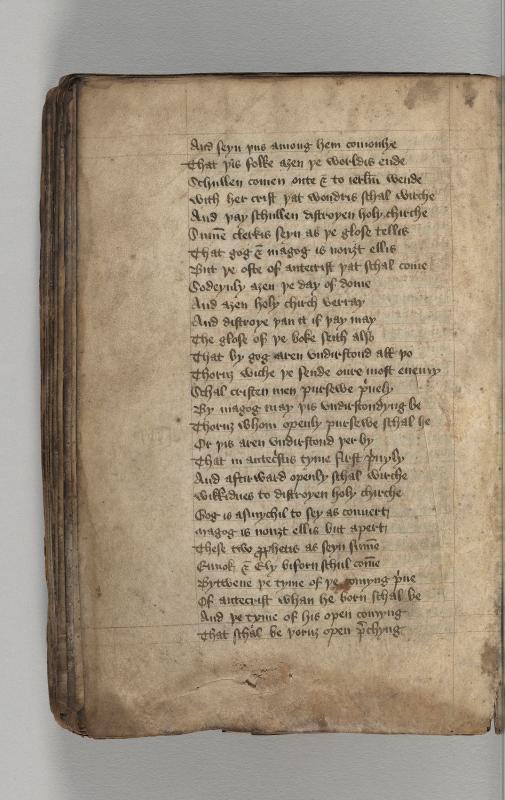 And seyn þus among hem comonlye
That þis folke aȝen þe worldis ende
Schullen comen oute & to ierlm̄ wende
With her crist þat wondris schal wirche
And þay schullen distroyen holy chirche
Summe clerkis seyn as þe glose tellis
That gog & magog is nouȝt ellis
But þe oste of antecrist þat schal come
Sodeynly aȝen þe day of dome
And aȝen holy chirch werray
And distroye þan it if þay may
The glose of þe boke seith also
That by gog aren vndirstond all þo
Thoruȝ wiche þe fende oure most enemy
Schal cristen men pursewe p̄uely
By magog may þis vndirstondyng be
Thoruȝ whom openly pursewe schal he
Or þis aren vndirstond þer by
That in antecristis tyme first p̄uyly
And aftirward openly schal wirche
Wikkidnes to distroyen holy chirche
Gog is asmychil to sey as couert
Magog is nouȝt ellis but apert
These two ꝓphetis as seyn summe
Ennok & Ely biforn schul come
Bytwene þe tyme of þe comyng p̄ue
Of antecrist whan he born schal be
And þe tyme of his open comyng
That schal be þoruȝ open p̄chyng